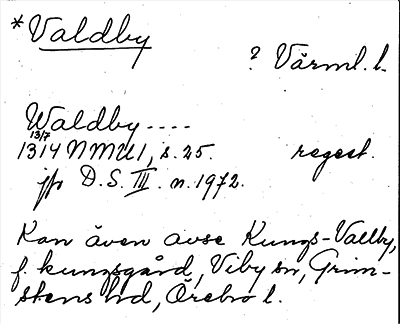 *Valdby
? Värml. l.
Waldby ....
13/7
1314 NMU1, s. 25. regest.
jfr D.S. III. n. 1972.
Kan även avse Kungs-Vallby,
f. kungsgård, Viby sn, Grim-
stens hd, Örebro l.